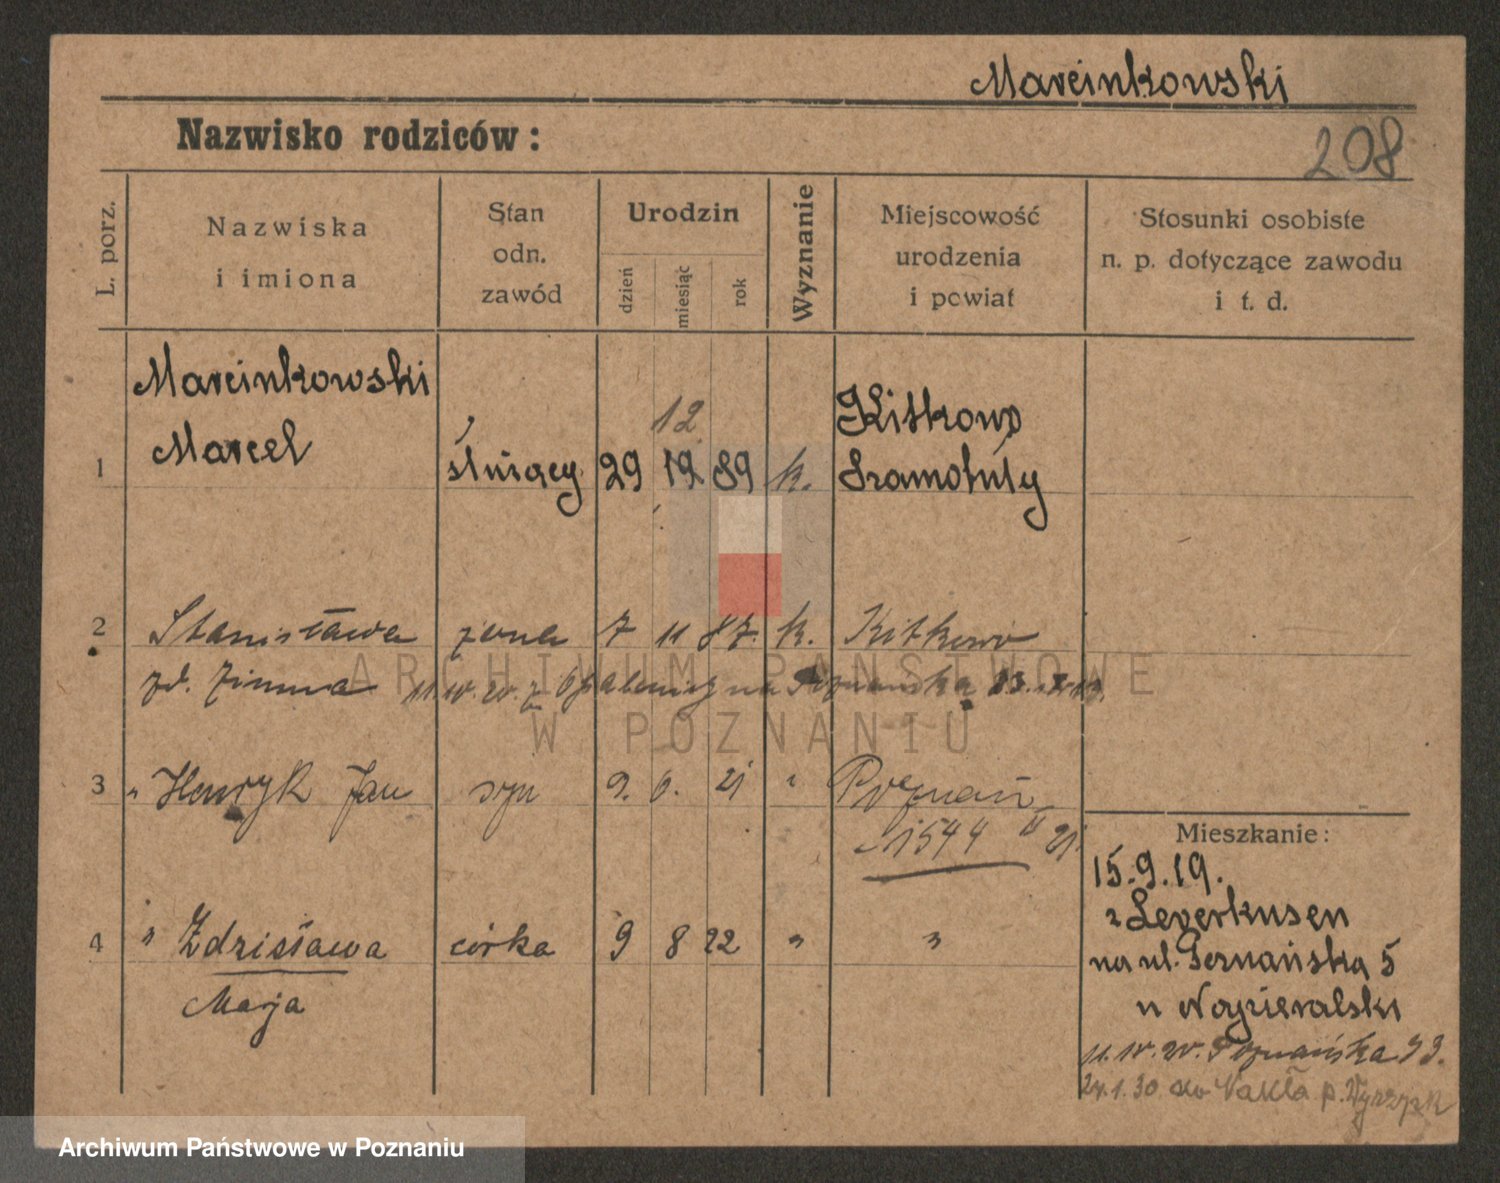 Marcinkowski
Nazwisko rodziców:
208
L. porz.
Nazwiska
i imiona
Stan
odn.
zawód
Urodzin
dzień
miesiąc
rok
Wyznanie
Miejscowość
urodzenia
i powiat
Stosunki osobiste
n. p. dotyczące zawodu
i t. d.
Marcinkowski
12
Kitkowo
1 Marcel służący 29 12 89 k. Szamotuły
2 Stanisława żona 7 11 87. k. Kitkowo
zd. Zimna 11. IV. 20. z Opalenicy na Poznańska
3 " Henryk Jan syn 9. 6. 21 " Poznań
1544 21
4 " Zdzisława córka 9 8 22 " "
Marja
Mieszkanie:
15.9.19.
z Leverkusen
na ul. Poznańska 5
u
11. IV. 20. Poznańska 53.
24.1.30 do Nakła p. Wyrzysk
ARCHIWUM PAŃSTWOWE
W POZNANIU
Archiwum Państwowe w Poznaniu